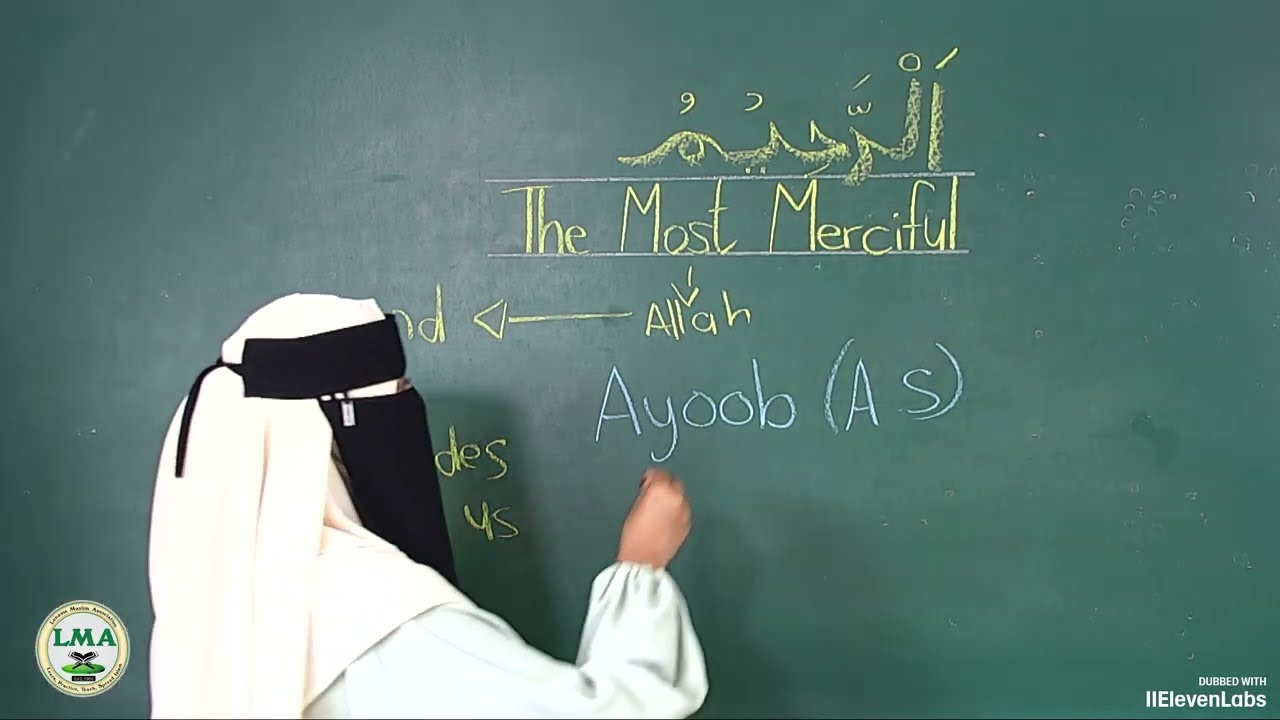 اَلْرَّحِيْمُ
The Most Merciful
Allah
Ayoob (AS)
des
ys
Lenasia Muslim Association
LMA
EST. 1986
Learn, Practice, Teach, Spread Islam
DUBBED WITH
IIElevenLabs